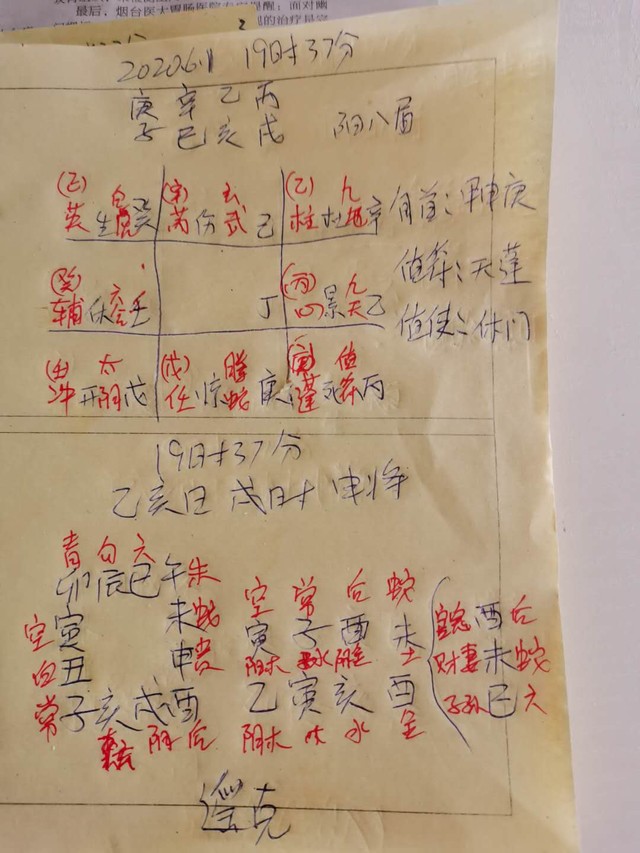 最后，烟台医大胃肠医院
的治疗是
2020.6.1 19时37分
庚 辛 乙 丙
子 巳 亥 戌 阳八局
(乙) 白 (辛) 玄 (乙) 九
英 生 虎 癸 芮 伤 武 己 柱 杜 地 辛 旬首：甲申庚
值符：天蓬
(癸) 六 (丙) 九
辅 休 合 壬 丁 心 景 天 乙 值使：休门
太 (戊) 螣 值
冲 开 阴 戊 任 惊 蛇 庚 蓬 死 符 丙
19时37分
乙亥日 戌时 申将
青 勾 六
卯 辰 巳 午 朱 空 常 后 蛇
空 寅 未 蛇 寅 子 酉 未 官鬼 酉 后
白 丑 申 贵 阳木 土 财妻 未 蛇
常 子 亥 戌 酉 乙 寅 亥 酉 子孙 巳 六
玄 阴 后 阴木 木 水 金
遥克